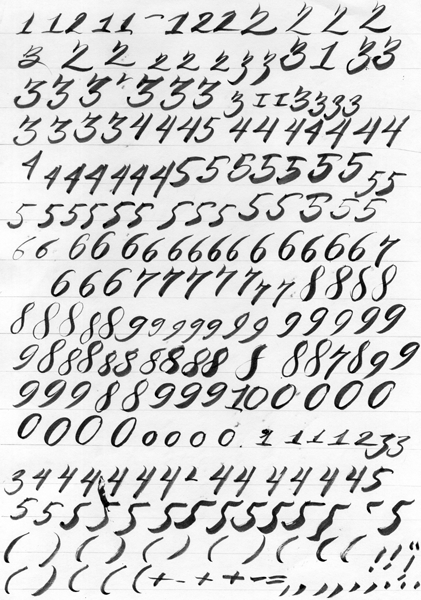 1 1 2 1 1 - 1 2 2 2 2 2 2 2
3 2 2 2 2 2 3 3 3 1 3 3
3 3 3 ' 3 3 3 3 1 1 3 3 3 3
3 3 3 3 4 4 4 5 4 4 4 4 4 4 4 4
4 4 4 4 4 4 4 5 5 5 5 5 5 5 5 5 5
5 5 5 5 5 5 5 5 5 5 5 5 5 5
6 6 6 6 6 6 6 6 6 6 6 6 6 6 6 6 7
6 6 6 7 7 7 7 7 7 7 7 8 8 8 8
8 8 8 8 8 9 9 9 9 9 9 9 9 9 9 9 9 9
9 8 8 8 8 8 8 8 8 8 8 8 8 8 7 8 9 9
9 9 9 8 8 9 9 9 1 0 0 0 0 0 0
0 0 0 0 0 0 0 0 . 1 1 1 1 2 3 3
3 4 4 4 4 4 4 - 4 4 4 4 4 4 5
5 5 5 5 5 5 5 5 5 5 5 5 5 - 5
( ) ( ) ( ) ( ) ( ( ( ! ! !
( ) ( ( ( + - + + - = , , , , , , ,